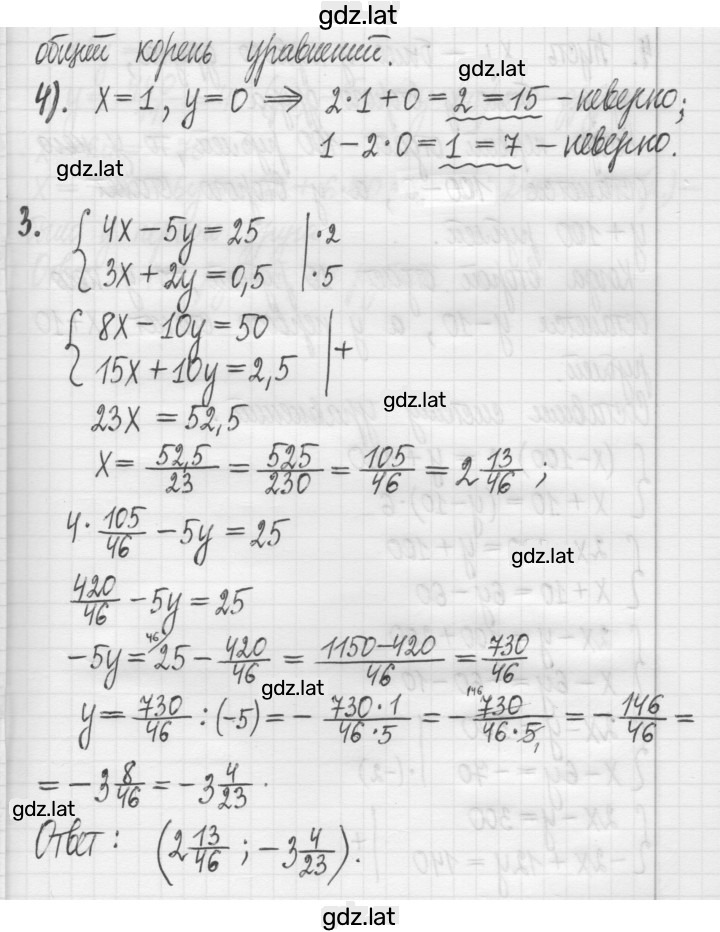 gdz.lat
общий корень уравнений.
gdz.lat
4). x=1, y=0 ⇒ 2·1+0=2=15 – неверно;
1–2·0=1=7 – неверно.
gdz.lat
3. { 4x–5y=25 |·2
3x+2y=0,5 |·5
{ 8x–10y=50 | +
15x+10y=2,5
gdz.lat
23x = 52,5
x = 52,5/23 = 525/230 = 105/46 = 2 13/46 ;
4· 105/46 –5y=25
gdz.lat
420/46 –5y=25
–5y= 46/ 25– 420/46 = 1150–420/46 = 730/46
gdz.lat
y= 730/46 : (–5) = – 730·1/46·5 = – 146 730/46·5 1 = – 146/46 =
= –3 8/46 = –3 4/23 .
gdz.lat
Ответ: (2 13/46 ; –3 4/23).
gdz.lat